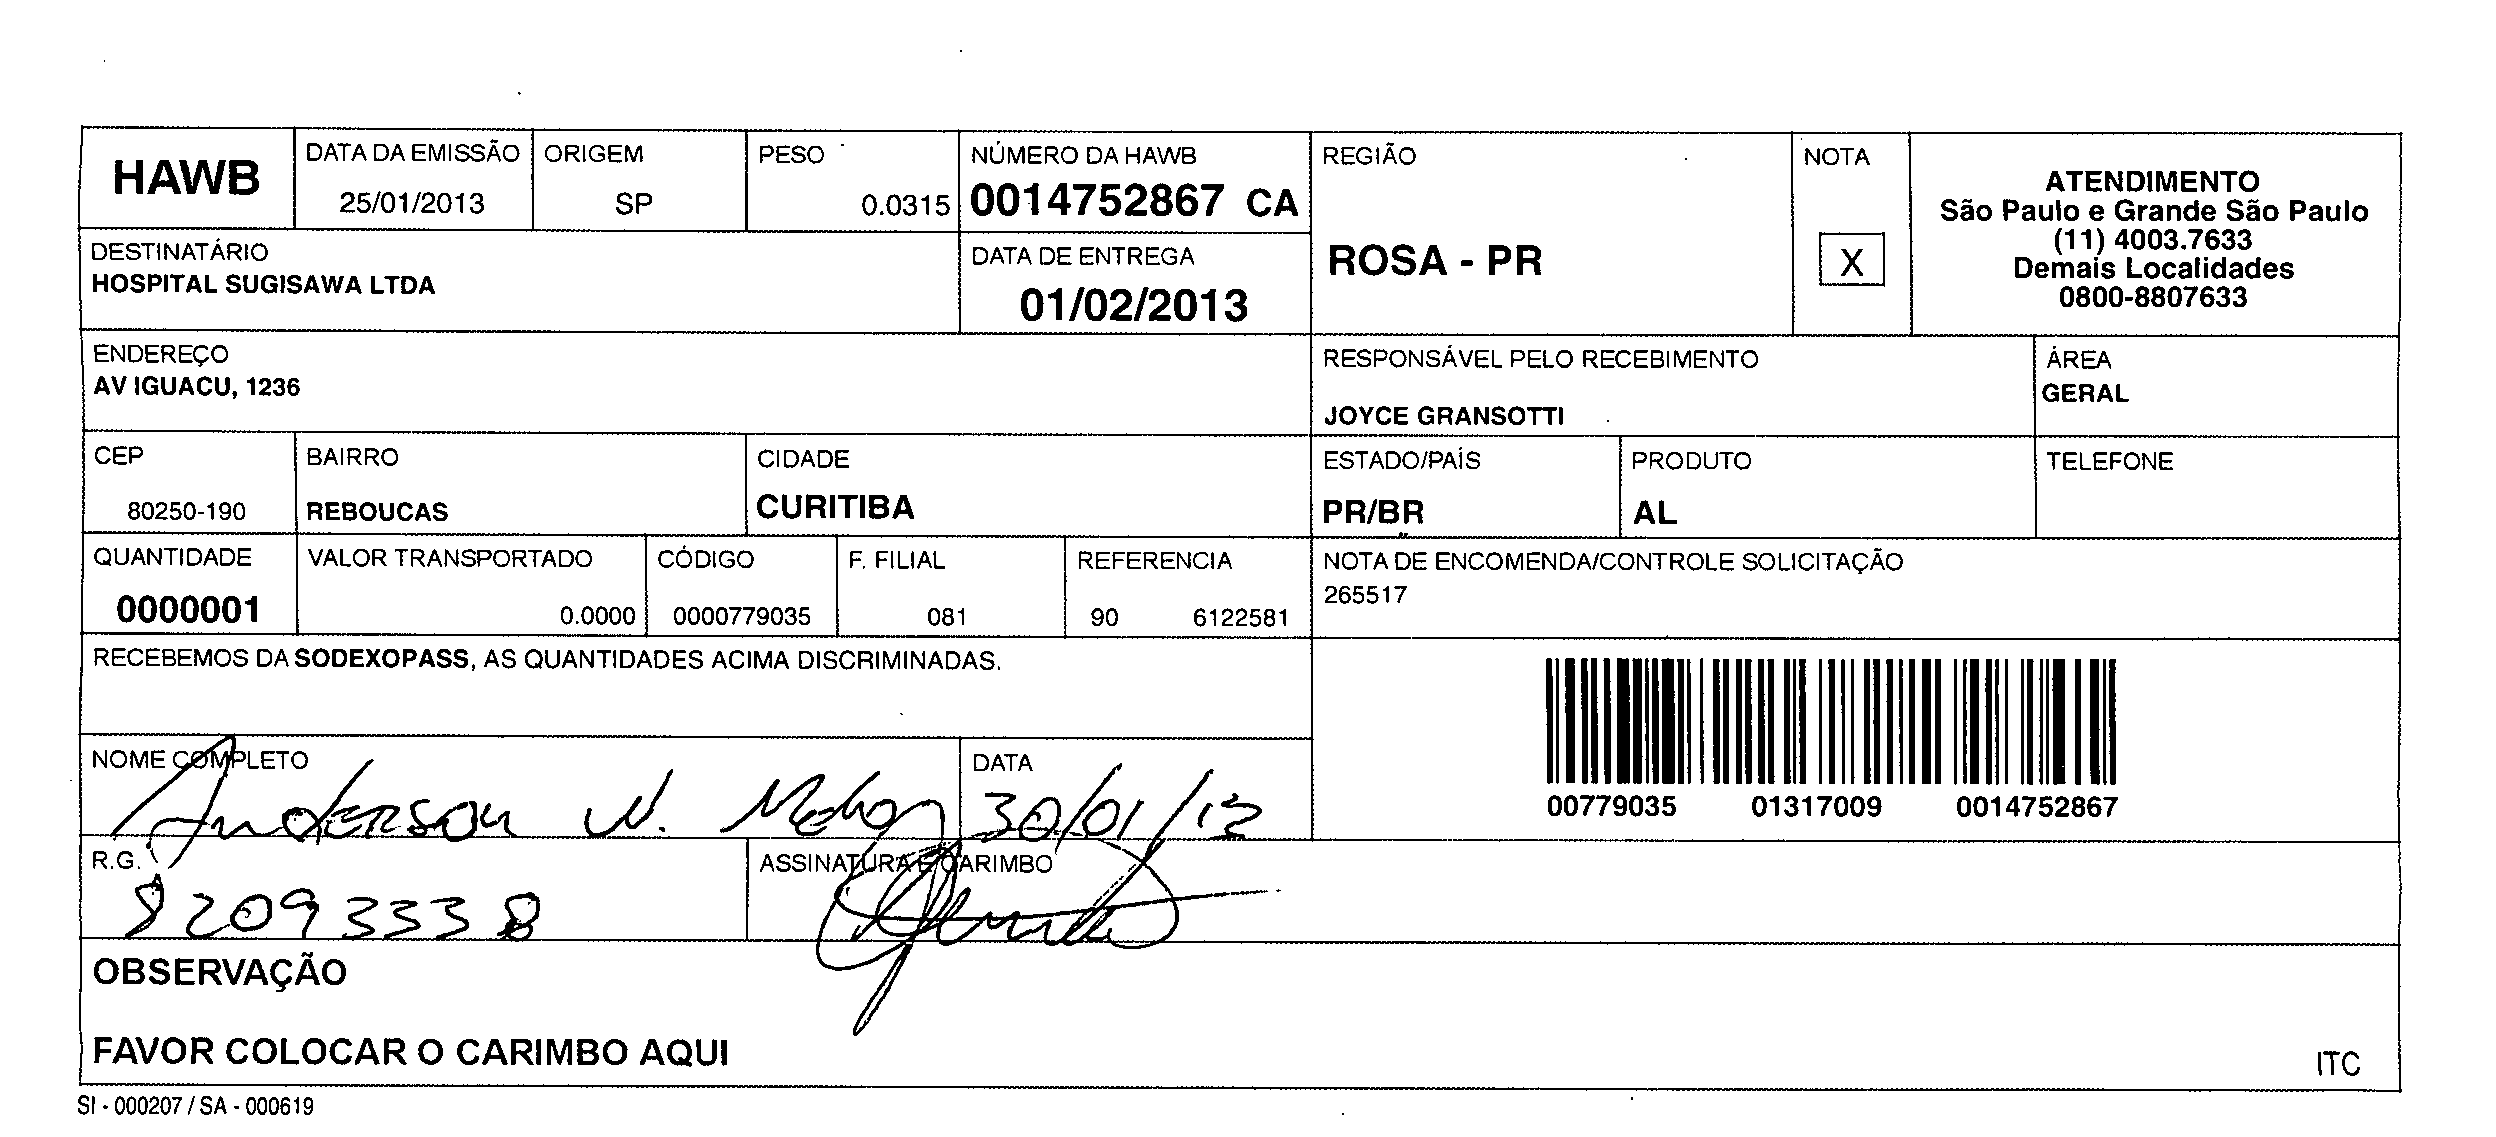 HAWB
DATA DA EMISSÃO
25/01/2013
ORIGEM
SP
PESO
0.0315
NÚMERO DA HAWB
0014752867 CA
REGIÃO
ROSA - PR
NOTA
X
ATENDIMENTO
São Paulo e Grande São Paulo
(11) 4003.7633
Demais Localidades
0800-8807633
DESTINATÁRIO
HOSPITAL SUGISAWA LTDA
DATA DE ENTREGA
01/02/2013
ENDEREÇO
AV IGUACU, 1236
RESPONSÁVEL PELO RECEBIMENTO
JOYCE GRANSOTTI
ÁREA
GERAL
CEP
80250-190
BAIRRO
REBOUCAS
CIDADE
CURITIBA
ESTADO/PAÍS
PR/BR
PRODUTO
AL
TELEFONE
QUANTIDADE
0000001
VALOR TRANSPORTADO
0.0000
CÓDIGO
0000779035
F. FILIAL
081
REFERENCIA
90 6122581
NOTA DE ENCOMENDA/CONTROLE SOLICITAÇÃO
265517
RECEBEMOS DA SODEXOPASS, AS QUANTIDADES ACIMA DISCRIMINADAS.
00779035 01317009 0014752867
NOME COMPLETO
Anderson W.
DATA
30/01/13
R.G.
82093338
ASSINATURA E CARIMBO
OBSERVAÇÃO
FAVOR COLOCAR O CARIMBO AQUI
ITC
SI - 000207 / SA - 000619